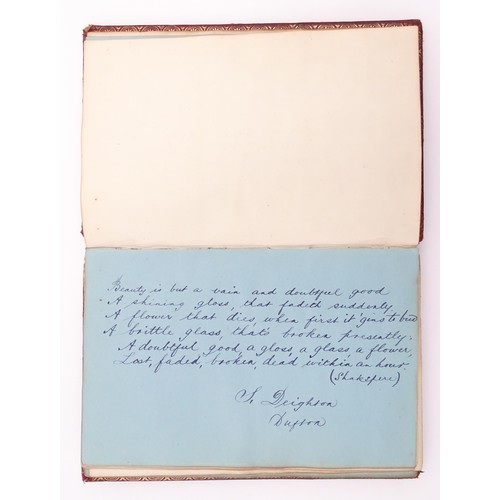 Beauty is but a vain and doubtful good
A shining gloss, that fadeth suddenly
A flower that dies, when first it 'gins to bud
A brittle glass, that's broken presently:
A doubtful good, a gloss, a glass, a flower,
Lost, faded, broken, dead within an hour.
(Shakspere)
S. Deighton